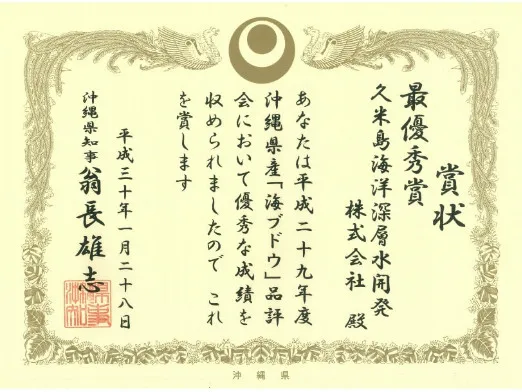 賞状
最優秀賞
久米島海洋深層水開発
株式会社 殿
あなたは平成二十九年度
沖縄県産「海ブドウ」品評
会において優秀な成績を
収められましたので これ
を賞します
平成三十年一月二十八日
沖縄県知事 翁長雄志
沖縄県